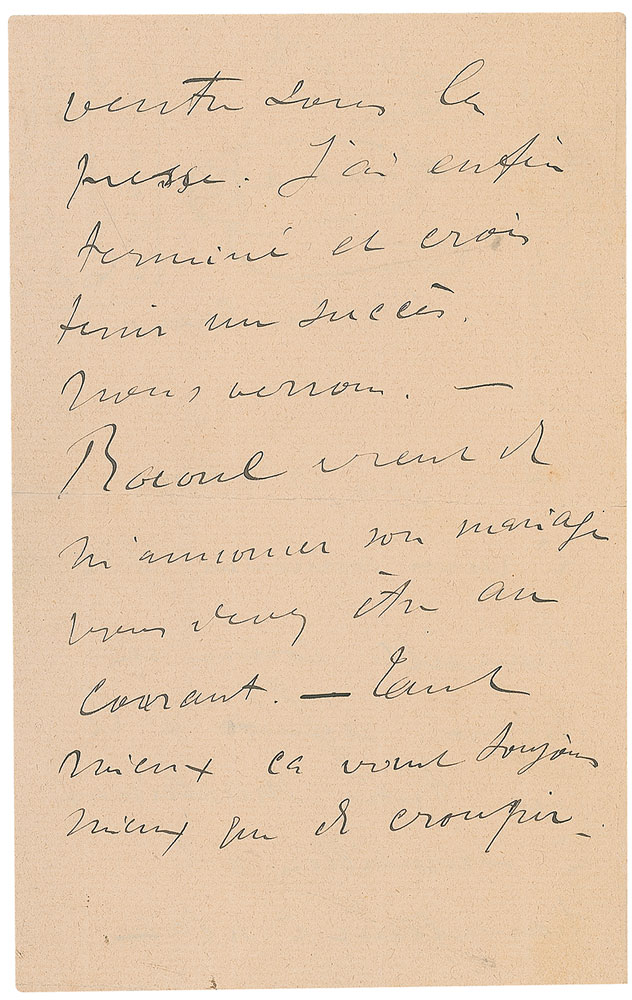 ventre sous la
presse. J'ai enfin
terminé et crois
tenir un succès.
Nous verrons. —
Raoul vient de
m'annoncer son mariage
vous devez être au
courant. — Tant
mieux ça vaut toujours
mieux que de croupir _